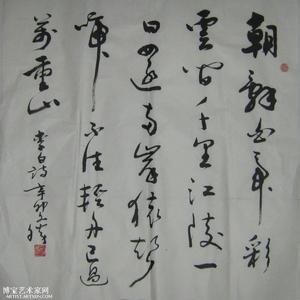 朝辭白帝彩
雲間千里江陵一
日還兩岸猿聲
啼不住輕舟已過
萬重山
李白詩辛卯
博宝艺术家网
ARTIST.ARTXUN.COM